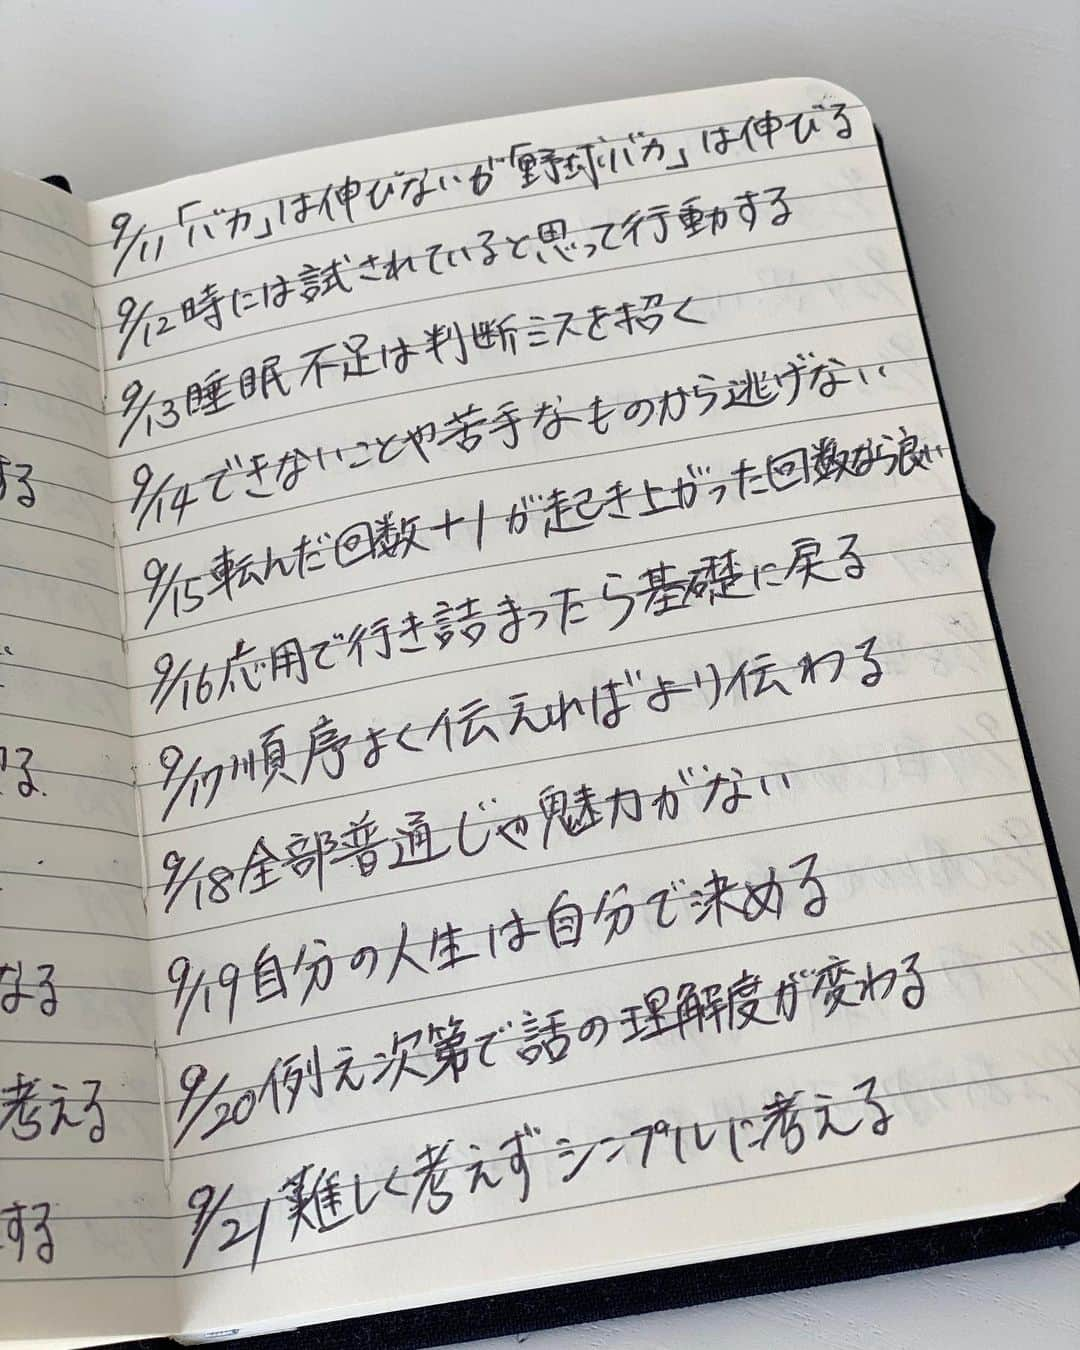 9/11「バカ」は伸びないが「野球バカ」は伸びる
9/12時には試されていると思って行動する
9/13睡眠不足は判断ミスを招く
9/14できないことや苦手なものから逃げない
9/15転んだ回数+1が起き上がった回数なら良い
9/16応用で行き詰まったら基礎に戻る
9/17順序よく伝えればより伝わる
9/18全部普通じゃ魅力がない
9/19自分の人生は自分で決める
9/20例え次第で話の理解度が変わる
9/21難しく考えずシンプルに考える
する
る
なる
考える
する